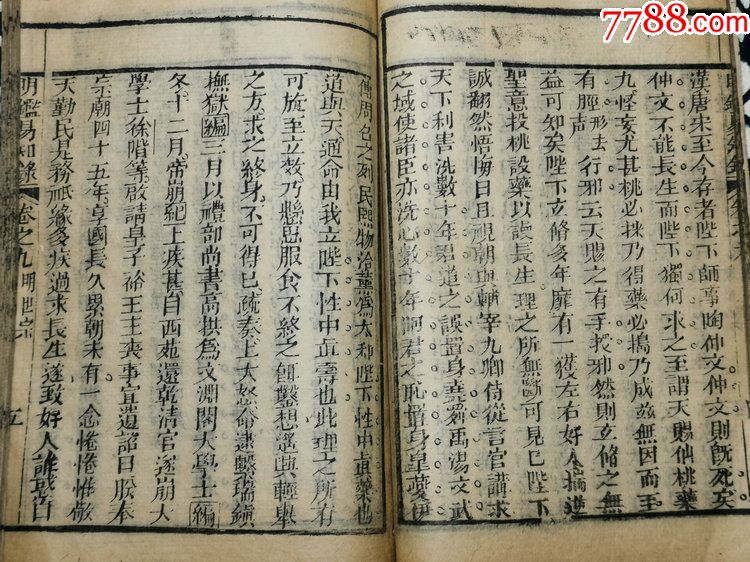 7788.com
漢唐宋至今存者陛下師事陶仲文仲文則既死矣
仲文不能長生而陛下獨何求之至謂天賜仙桃藥
九怪妄尤甚桃必採乃得藥必搗乃成兹無因而至
有脛形法行邪云天賜之有手授邪然則玄脩之無
益可知矣陛下玄脩多年靡有一獲左右奸人揣逆
聖意投桃設藥以誤長生理之所無斷可見巳陛下
誠翻然悟悔日且視朝與輔宰九卿侍從言官講求
天下利害洗數十年君道之誤置身堯舜禹湯文武
之域使諸臣亦洗心數十年阿君之恥置身皐夔伊
傅周召之列民熙物洽薰爲太和陛下性中眞藥也
道與天通命由我立陛下性中眞壽也此理之所有
可旋至立效乃懸思服食不終之餌鑿想遥興輕舉
之方求之終身不可得巳疏奏上大怒命逮繫瑞鎮
撫獄編三月以禮部尚書高拱爲文淵閣大學士編
冬十二月帝崩紀上疾甚自西苑還乾清宫遂崩大
學士徐階等啟請皇子裕王主喪事宣遺詔曰朕奉
宗廟四十五年享國長久累朝未有一念惓惓惟敬
天勤民是務祇緣多疾過求長生遂致奸人誑惑自
明鑑易知錄 卷之九 明世宗 五